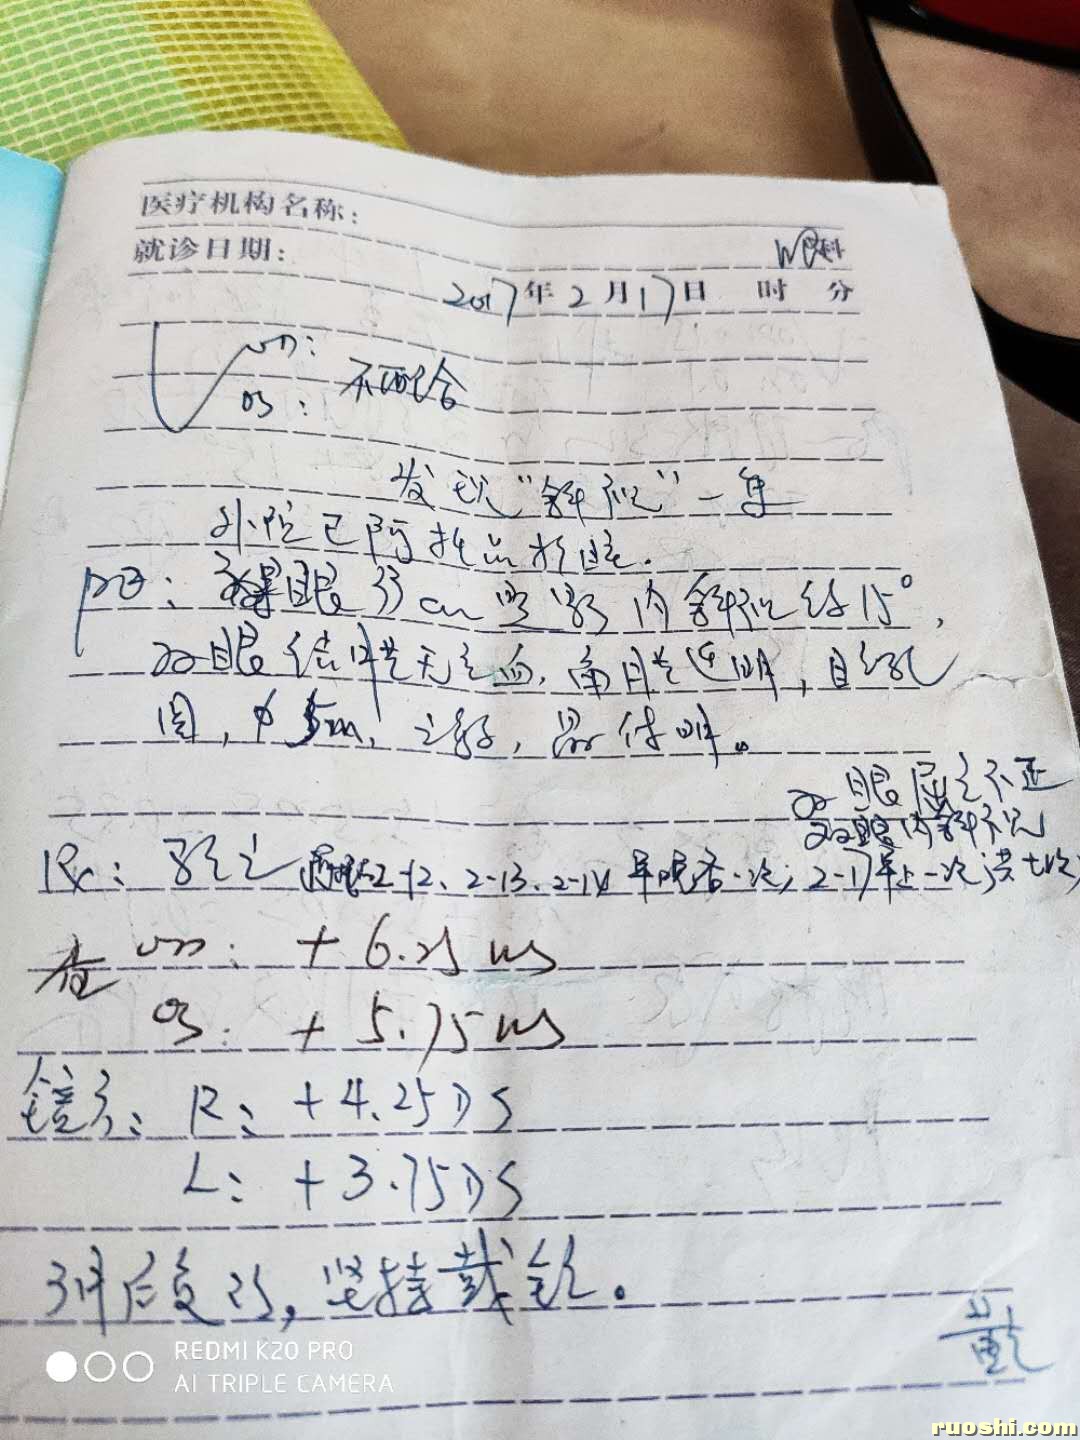 医疗机构名称：
就诊日期：
科
2017年2月17日 时 分
V OD：
OS： 不配合
发现"斜视"一年
外院已阿托品扩瞳。
PE： 眼33cm 内斜视约15°，
双眼结膜无充血，角膜透明，瞳孔
圆，φ5m，晶体明。
双眼屈光不正
双眼内斜视
Rx： 2-12、2-13、2-14 早晚各一次；2-17早上一次；共七次；
在 OD： +6.25 DS
OS： +5.75 DS
镜 R： +4.25DS
L： +3.75DS
3月后复 ，坚持戴镜。
REDMI K20 PRO
AI TRIPLE CAMERA
ruoshi.com